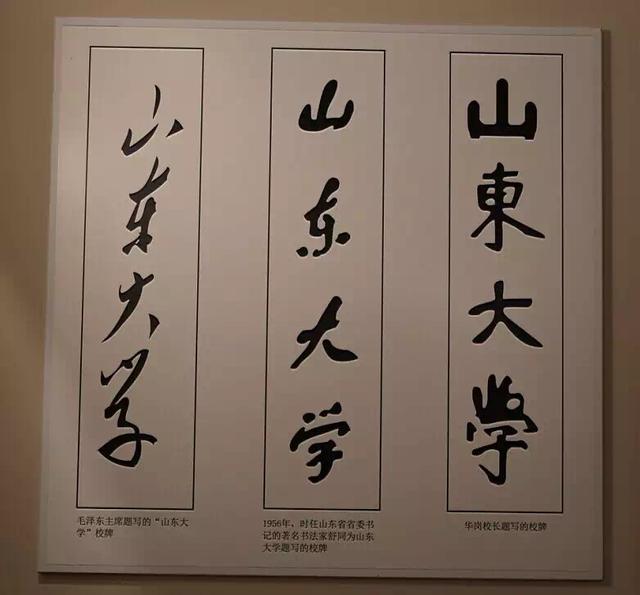 山东大学
毛泽东主席题写的“山东大
学”校牌
山东大学
1956年，时任山东省省委书
记的著名书法家舒同为山东
大学题写的校牌
山東大學
华岗校长题写的校牌